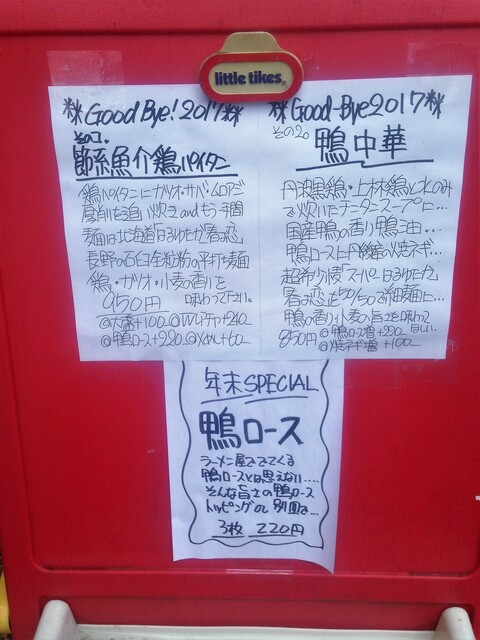 little tikes
Good Bye! 2017
その1.
節系魚介鶏パイタン
鶏パイタンにカツオ・サバ・ムロアジ
麺は北海道「はるゆたか」「春よ恋」
長野の石臼全粒粉の平打ち麺
鶏・カツオ・小麦の香りを
950円 味わって下さい。
@大盛+100 @Wワンタン+240
@鴨ロース+220 @メンマ+60
Good-Bye2017
その2。
鴨中華
丹波黒鶏・上林鶏と水のみ
で炊いたチータンスープに…
国産鴨の香り鴨油…
鴨ロースに丹後産の焼ネギ…
超希少種「スーパーはるゆたか」
春よ恋を50/50で細麺に…
鴨の香り小麦の旨さを味わって
850円 @鴨ロース増+220 下さい。
@焼ネギ増+100
年末SPECIAL
鴨ロース
ラーメン屋さんでてくる
鴨ロースとは思えない....
そんな旨さの鴨ロース
トッピング or 別皿で…
3枚 220円